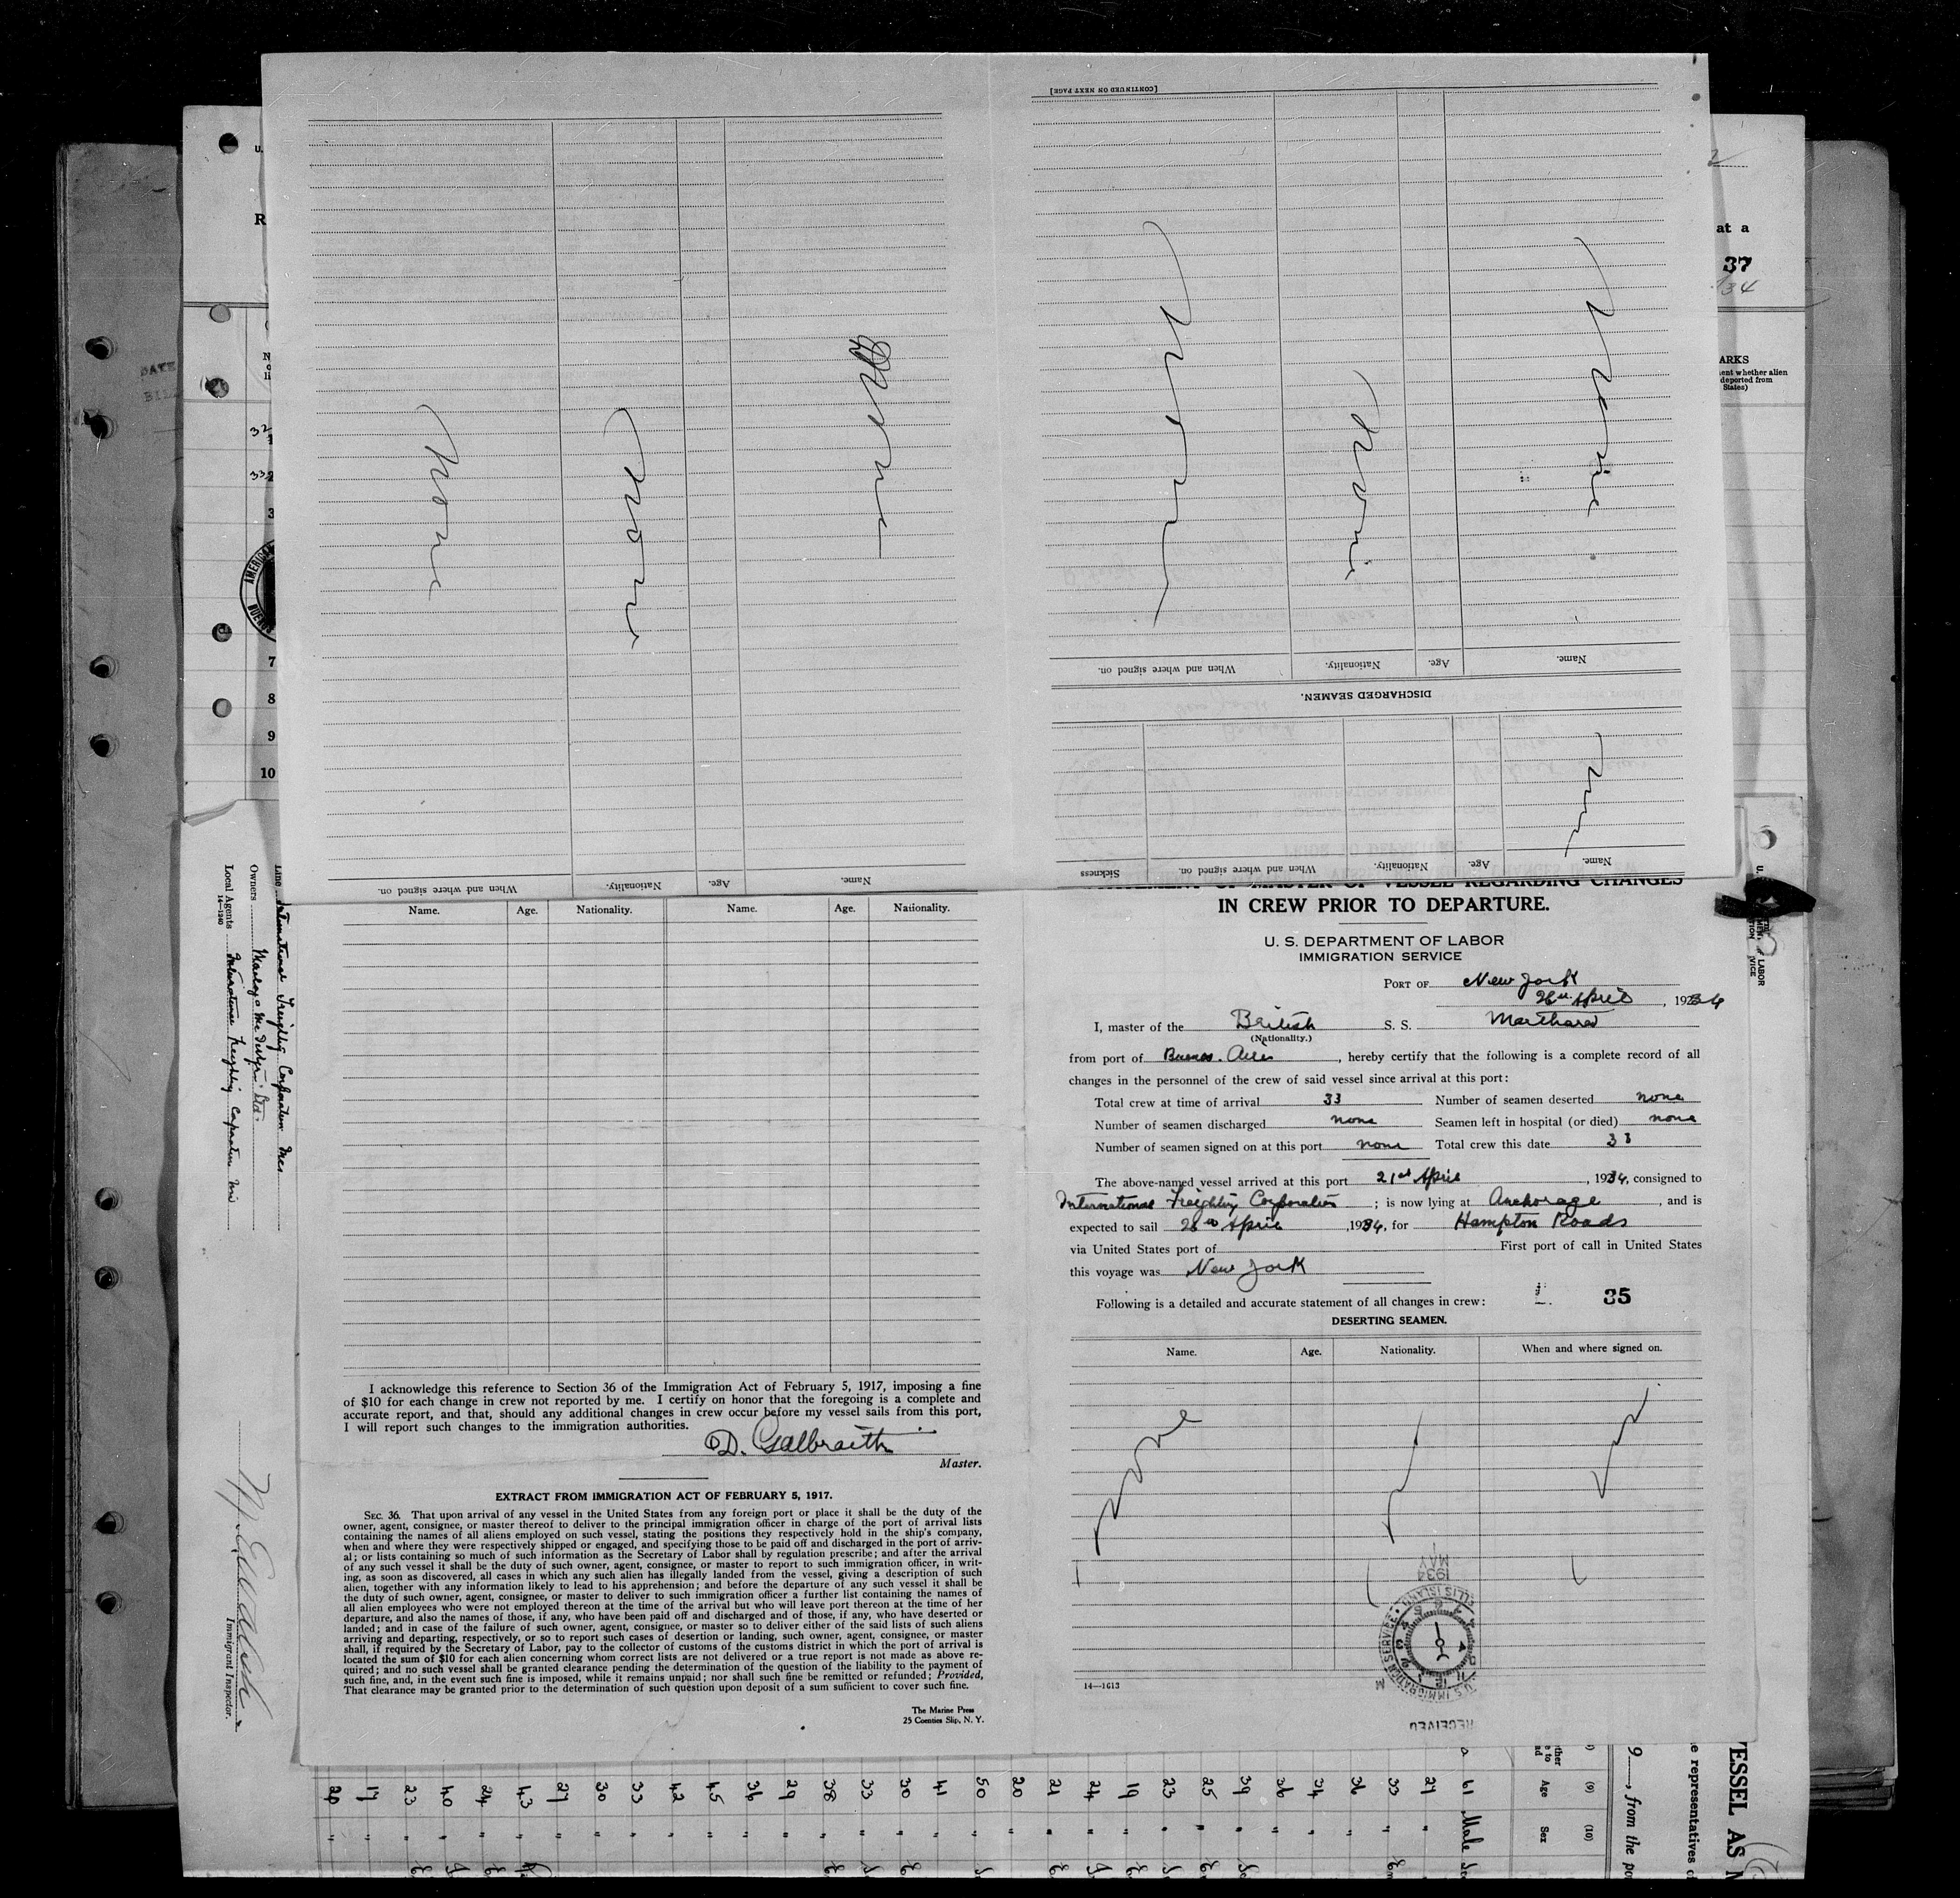 [CONTINUED ON NEXT PAGE]
None
None
None
None
When and where signed on.
Nationality.
Age.
Name.
DISCHARGED SEAMEN.
None
Sickness
When and where signed on.
Nationality.
Age.
Name.
None
None
None
When and where signed on.
Nationality.
Age.
Name.
at a
37
34
ARKS
ent whether alien
deported from
States)
32
33
3
7
8
9
10
STATEMENT OF MASTER OF VESSEL REGARDING CHANGES
IN CREW PRIOR TO DEPARTURE.
U. S. DEPARTMENT OF LABOR
IMMIGRATION SERVICE
PORT OF New York
26th April, 1934
I, master of the British S. S. Marthara
(Nationality.)
from port of Buenos Aires, hereby certify that the following is a complete record of all
changes in the personnel of the crew of said vessel since arrival at this port:
Total crew at time of arrival 33 Number of seamen deserted none
Number of seamen discharged none Seamen left in hospital (or died) none
Number of seamen signed on at this port none Total crew this date 33
The above-named vessel arrived at this port 21st April, 1934, consigned to
International Freighting Corporation; is now lying at Anchorage, and is
expected to sail 28th April, 1934, for Hampton Roads
via United States port of First port of call in United States
this voyage was New York
Following is a detailed and accurate statement of all changes in crew: 35
DESERTING SEAMEN.
Name. Age. Nationality. When and where signed on.
None
14—1613
RECEIVED
U.S. IMMIGRATION SERVICE • ELLIS ISLAND
1934
MAY
Name. Age. Nationality. Name. Age. Nationality.
I acknowledge this reference to Section 36 of the Immigration Act of February 5, 1917, imposing a fine
of $10 for each change in crew not reported by me. I certify on honor that the foregoing is a complete and
accurate report, and that, should any additional changes in crew occur before my vessel sails from this port,
I will report such changes to the immigration authorities.
D. Galbraith
Master.
EXTRACT FROM IMMIGRATION ACT OF FEBRUARY 5, 1917.
SEC. 36. That upon arrival of any vessel in the United States from any foreign port or place it shall be the duty of the
owner, agent, consignee, or master thereof to deliver to the principal immigration officer in charge of the port of arrival lists
containing the names of all aliens employed on such vessel, stating the positions they respectively hold in the ship's company,
when and where they were respectively shipped or engaged, and specifying those to be paid off and discharged in the port of arriv-
al; or lists containing so much of such information as the Secretary of Labor shall by regulation prescribe; and after the arrival
of any such vessel it shall be the duty of such owner, agent, consignee, or master to report to such immigration officer, in writ-
ing, as soon as discovered, all cases in which any such alien has illegally landed from the vessel, giving a description of such
alien, together with any information likely to lead to his apprehension; and before the departure of any such vessel it shall be
the duty of such owner, agent, consignee, or master to deliver to such immigration officer a further list containing the names of
all alien employees who were not employed thereon at the time of the arrival but who will leave port thereon at the time of her
departure, and also the names of those, if any, who have been paid off and discharged and of those, if any, who have deserted or
landed; and in case of the failure of such owner, agent, consignee, or master so to deliver either of the said lists of such aliens
arriving and departing, respectively, or so to report such cases of desertion or landing, such owner, agent, consignee, or master
shall, if required by the Secretary of Labor, pay to the collector of customs of the customs district in which the port of arrival is
located the sum of $10 for each alien concerning whom correct lists are not delivered or a true report is not made as above re-
quired; and no such vessel shall be granted clearance pending the determination of the question of the liability to the payment of
such fine, and, in the event such fine is imposed, while it remains unpaid; nor shall such fine be remitted or refunded; Provided,
That clearance may be granted prior to the determination of such question upon deposit of a sum sufficient to cover such fine.
The Marine Press
25 Coenties Slip, N. Y.
Line International Freighting Corporation Inc
Owners
Local Agents International Freighting Corporation Inc
14—1240
Immigrant Inspector.
20 17 23 40 24 43 27 30 33 42 45 36 29 38 33 30 41 50 20 21 24 19 23 25 39 26 34 36 33 27 61
Male
Age
Sex
(9)
(10)
9, from the po
e representatives of
VESSEL AS